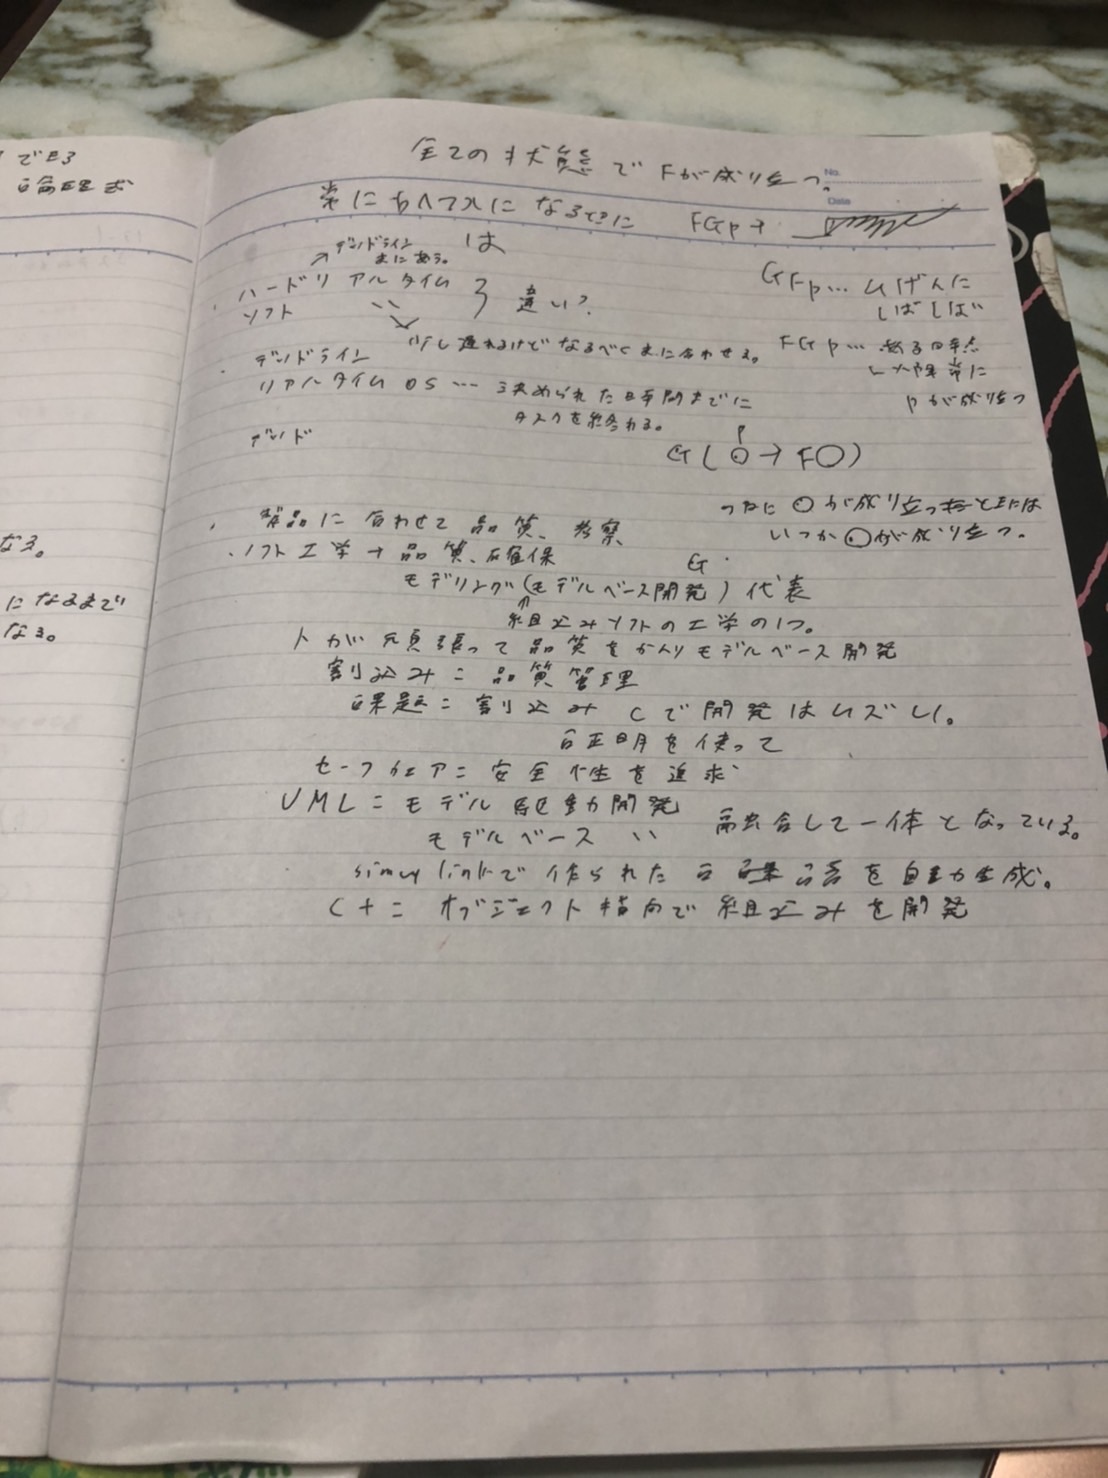 で王3
論理式
なる。
になるまで
なる。
全ての状態でFが成り立つ。
No.
Date
常に
になる
FGp→
は
デッドライン
まにあう。
ハードリアルタイム
ソフト 〃
違い?
GFp… むげんに
しばしば
少し遅れるけどなるべくまに合わせる。
FGp… ある時点
以降常に
pが成り立つ
デッドライン
リアルタイムOS… 決められた時間までに
タスクを終わる。
デッド
p
G(○→F○)
つねに○が成り立つときには
いつか○が成り立つ。
・製品に合わせて品質、考察
・ソフト工学→品質、確保
G
モデリング(モデルベース開発)代表
↑
組込みソフトの工学の1つ。
人が頑張って品質をかんりモデルベース開発
割り込み=品質管理
課題=割り込み Cで開発はムズい。
証明を使って
セーフウェア=安全性を追求
UML=モデル駆動開発
モデルベース 〃
融合して一体となっている。
simulinkで作られた 言語を自動生成。
C+=オブジェクト指向で組込みを開発